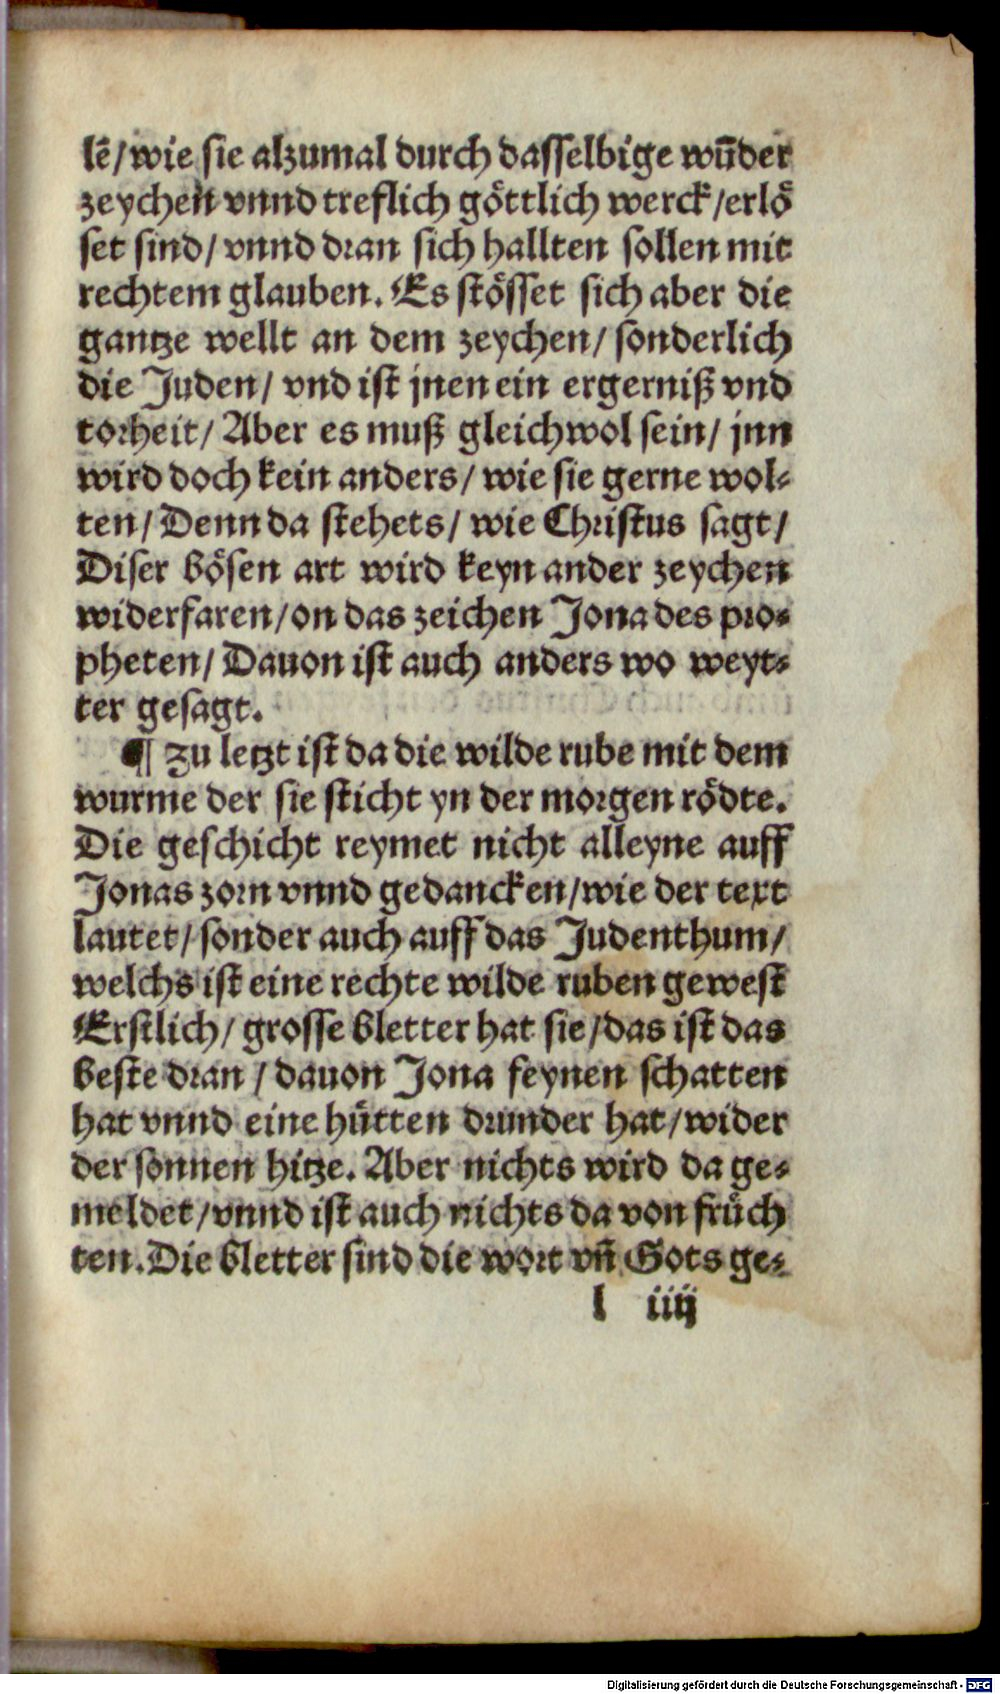 lē/wie sie alzumal durch dasselbige wūder
zeychen vnnd treflich göttlich werck/erlö
set sind/ vnnd dran sich hallten sollen mit
rechtem glauben. Es stösset sich aber die
gantze wellt an dem zeychen/ sonderlich
die Juden/ vnd ist jnen ein ergerniß vnd
torheit/ Aber es muß gleichwol sein/ jnn
wird doch kein anders/ wie sie gerne wol-
ten/ Denn da stehets/ wie Christus sagt/
Diser bösen art wird keyn ander zeychen
widerfaren/on das zeichen Jona des pro-
pheten/ Dauon ist auch anders wo weyt-
ter gesagt.
¶ Zu letzt ist da die wilde rube mit dem
wurme der sie sticht yn der morgen rödte.
Die geschicht reymet nicht alleyne auff
Jonas zorn vnnd gedancken/wie der text
lautet/ sonder auch auff das Judenthum/
welchs ist eine rechte wilde ruben gewest
Erstlich/ grosse bletter hat sie/das ist das
beste dran / dauon Jona feynen schatten
hat vnnd eine hütten drunder hat/wider
der sonnen hitze. Aber nichts wird da ge-
meldet/vnnd ist auch nichts da von früch
ten. Die bletter sind die wort vñ Gots ge-
l iiij
Digitalisierung gefördert durch die Deutsche Forschungsgemeinschaft - DFG